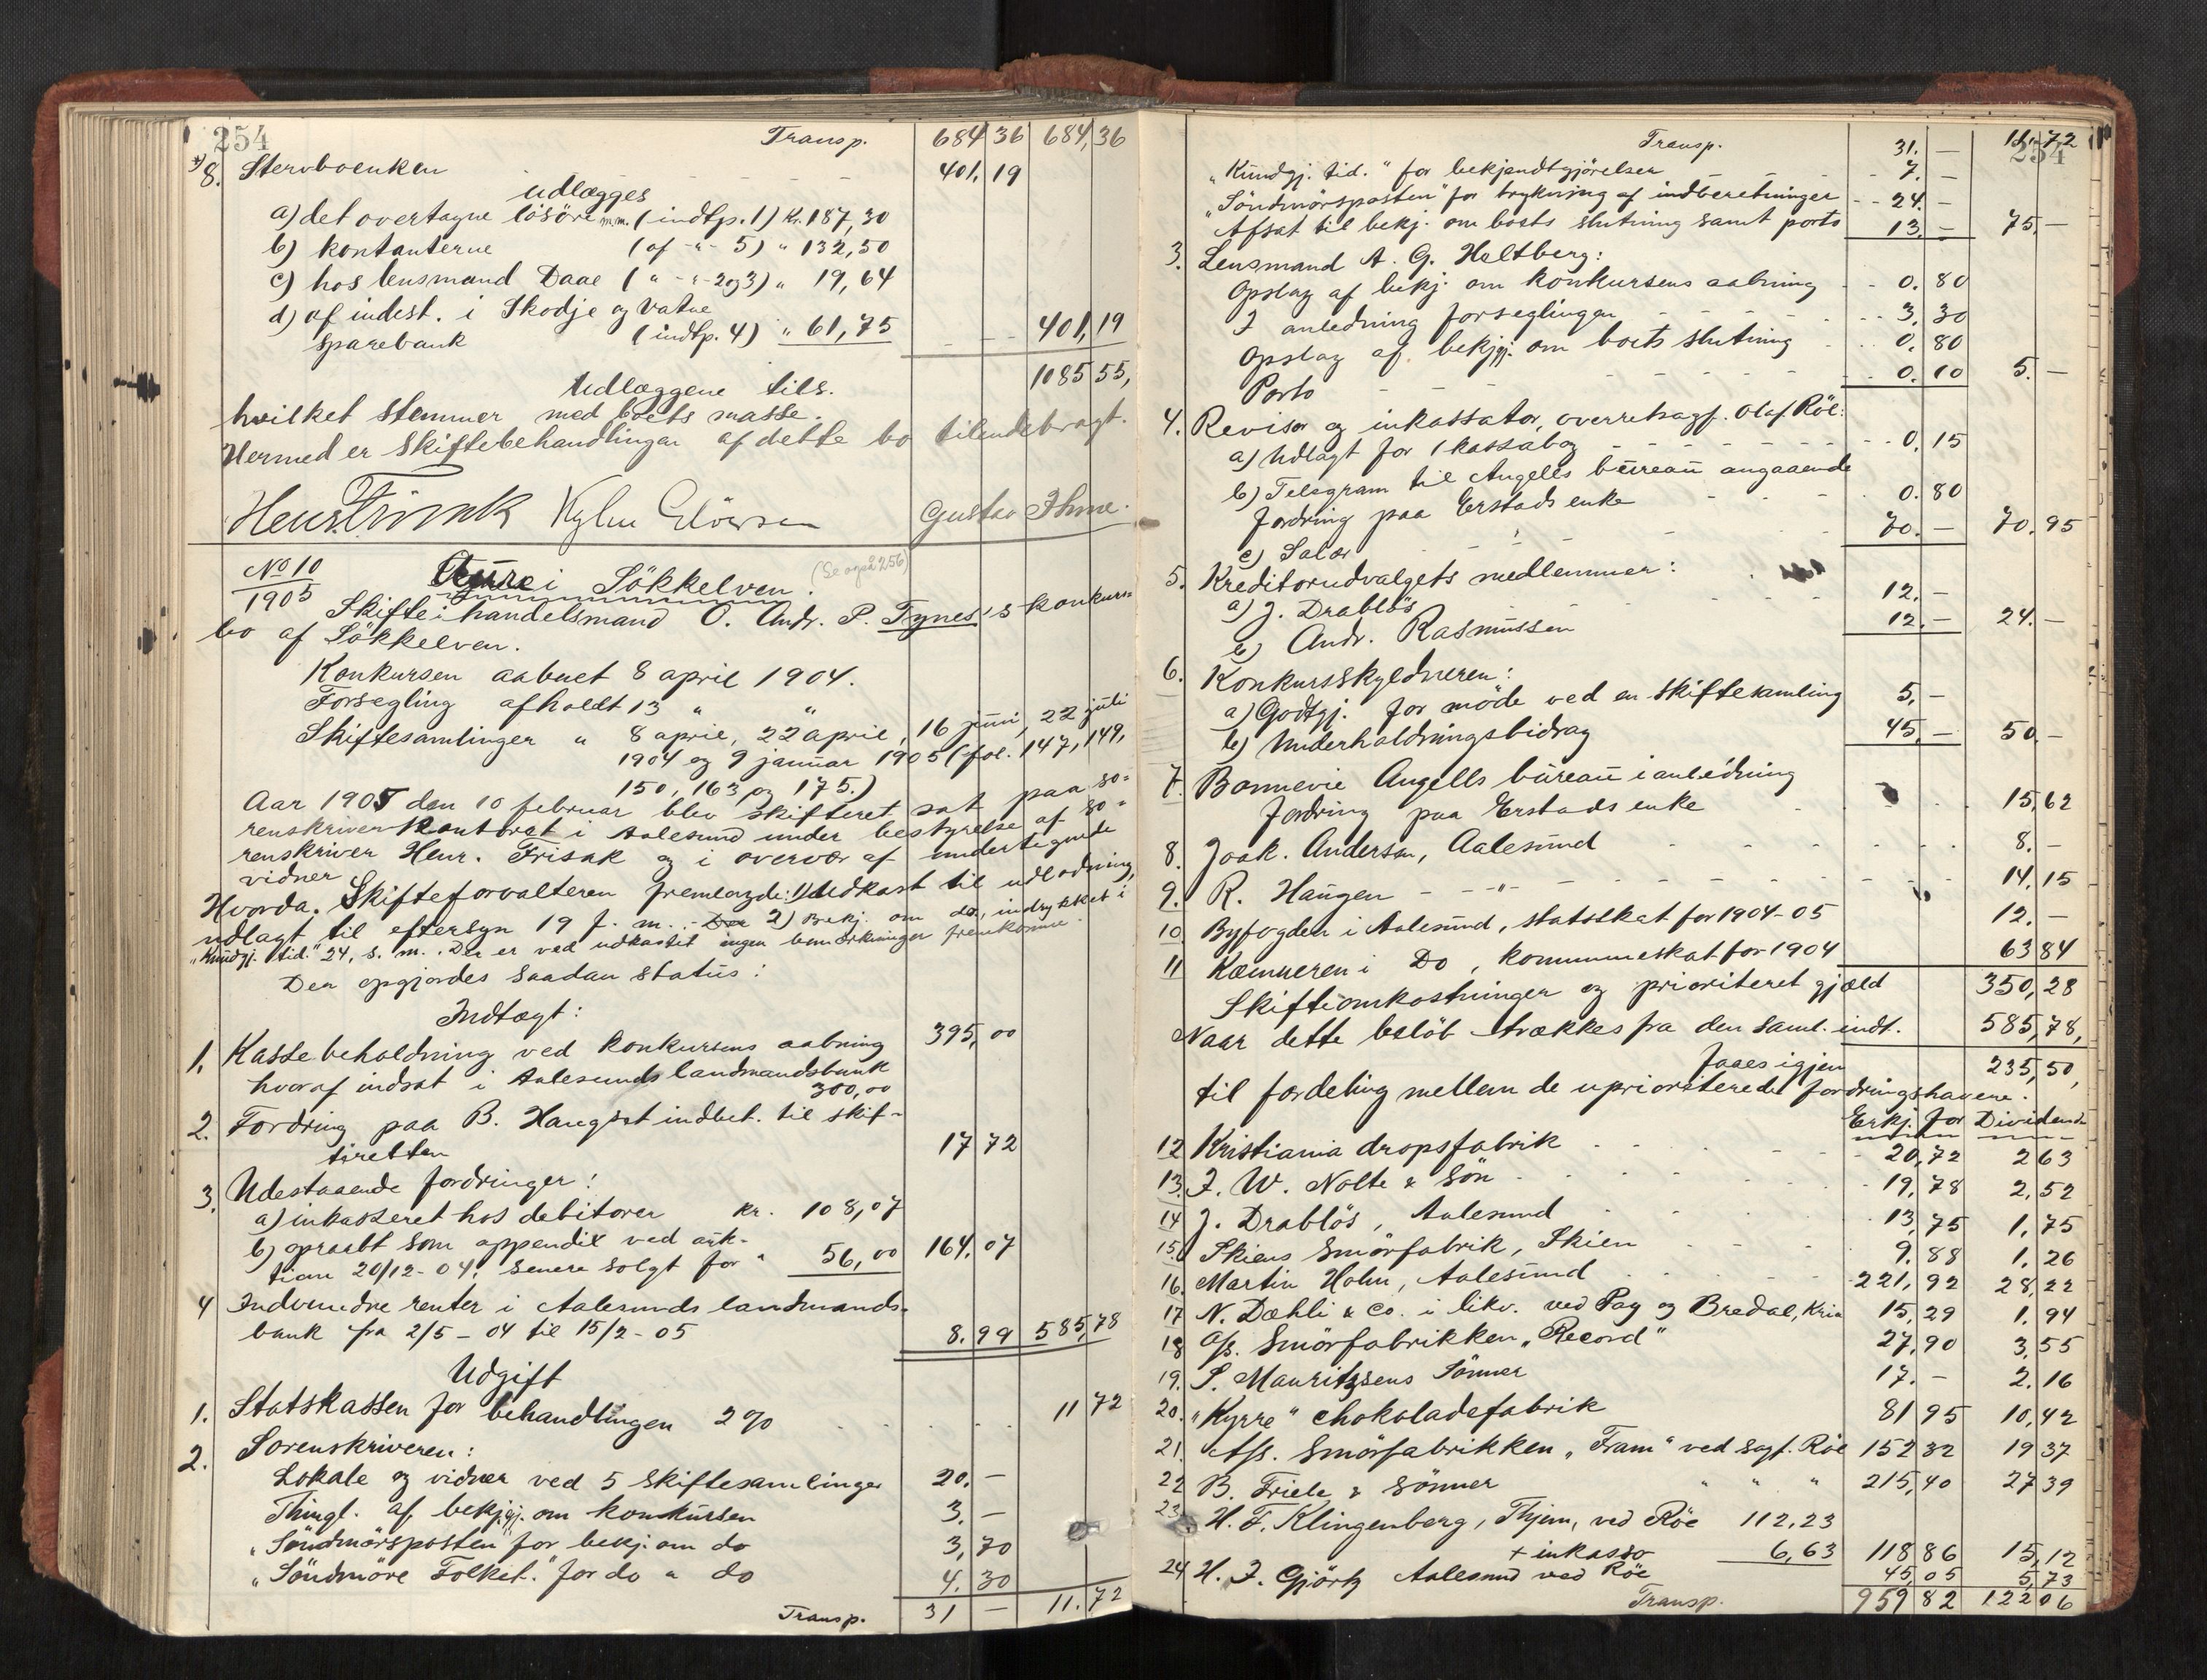 254
Transp. 684 36 684,36
8. Stervboenken 401,19
udlægges
a) det overtagne lösöre m.m. (indtp. 1) Kr. 187,30
b) kontanterne (af -"- 5) " 132,50
c) hos lensmand Daae ( " -"- 2og3) " 19,64
d) af indest. i Skodje og Vatne
sparebank (indtp. 4) " 61,75 401,19
Udlæggene tils. 1085 55,
hvilket stemmer med boets masse.
Hermed er Skiftebehandlingen af dette bo tilendebragt.
Henr Frisak Gustav Ihme.
No 10
1905
Aure i Sökkelven. (Se også 256)
Skifte i handelsmand O. Andr. P. Tynes's konkurs-
bo af Sökkelven.
Konkursen aabnet 8 april 1904.
Forsegling afholdt 13 " "
Skiftesamlinger " 8 april, 22 april, 16 juni, 22 juli
1904 og 9 januar 1905 (fol. 147, 149,
150, 163 og 175.)
Aar 1905 den 10 februar blev skifteret sat paa so-
renskriverkontoret i Aalesund under bestyrelse af so-
renskriver Henr. Frisak og i overvær af undertegnede
vidner
Hvorda. Skifteforvalteren fremlagde: 1) Udkast til udlodning,
udlagt til eftersyn 19 f. m. 2) Bekj. om do, indrykket i
"Kundgj. tid." 24, s. m. Der er ved udkastet ingen bemærkninger fremkomne.
Der opgjordes saadan status:
Indtægt:
1. Kassebeholdning ved konkursens aabning 395,00
hvoraf indsat i Aalesunds landmandsbank
300,00
2. Fordring paa B. Haugset indbet. til skif-
teretten 17 72
3. Udestaaende fordringer:
a) inkasseret hos debitorer kr. 108,07
b) opraabt som appendix ved auk-
tion 20/12-04, senere solgt for " 56,00 164,07
4 Indvundne renter i Aalesunds landmands-
bank fra 2/5-04 til 15/2-05 8,99 585,78
Udgift
1. Statskassen for behandlingen 2% 11 72
2. Sorenskriveren:
Lokale og vidner ved 5 skiftesamlinger 20.-
Thingl. af bekjgj. om konkursen 3.-
"Söndmörsposten" for bekj. om do 3,70
"Söndmöre Folket." for do " do 4,30
Transp. 31 - 11.72
254
Transp. 31.- 11.72
"Kundgj. tid." for bekjendtgjörelser 7.-
"Söndmörsposten" for trykning af indberetninger 24.-
Afsat til bekj. om bosts slutning samt porto 13.- 75.-
3. Lensmand A. G. Holtberg:
Opslag af bekj. om konkursens aabning 0.80
I anledning forseglingen 3.30
Opslag af bekjgj. om boets slutning 0.80
Porto 0.10 5.-
4. Revisor og inkassator, overretssagf. Olaf Röe:
a) Udlagt for 1 kassabog 0.15
b) Telegram til Angells büreau angaaende
fordring paa Erstads enke 0.80
c) Salær 70.- 70.95
5. Kreditorudvalgets medlemmer:
a) J. Drablös 12.-
b) Andr. Rasmussen 12.- 24.-
6. Konkursskyldneren:
a) Godtgj. for möde ved en skiftesamling 5.-
b) Underholdningsbidrag 45.- 50.-
7. Bonnevie Angells büreau i anledning
fordring paa Erstads enke 15,62
8. Joak. Andersen, Aalesund 8.-
9. R. Haugen -"- 14.15
10. Byfogden i Aalesund, statsskat for 1904-05 12.-
11 Kæmneren i Do, kommuneskat for 1904 63 84
Skifteomkostninger og prioriteret gjæld 350,28
Naar dette belöb trækkes fra den saml. indt. 585,78,
faaes igjen 235,50,
til fordeling mellem de uprioriterede fordringshavere.
Erkj. for Dividende
12 Kristiania dropsfabrik 20,72 2 63
13. J. W. Nolte & Sön 19,78 2,52
14 J. Drablös, Aalesund 13,75 1,75
15. Skiens Smörfabrik, Skien 9.88 1.26
16. Martin Holm, Aalesund 221,92 28,22
17 N. Dæhli & Co. i likv. ved Pay og Bredal, Kria 15,29 1.94
18 A/s. Smörfabrikken "Record" 27,90 3,55
19. P. Mauritzsens Sönner 17.- 2.16
20. "Kyrre" chokoladefabrik 81 95 10,42
21. A/s. Smörfabrikken "Fram" ved sagf. Röe 152 32 19 37
22 B. Friele & Sönner " " " 215,40 27 39
23. H. F. Klingenberg, Thjem, ved Röe 112,23
+ inkasso 6,63 118 86 15,12
24 H. J. Gjörtz Aalesund ved Röe 45,05 5,73
Transp. 959 82 122 06